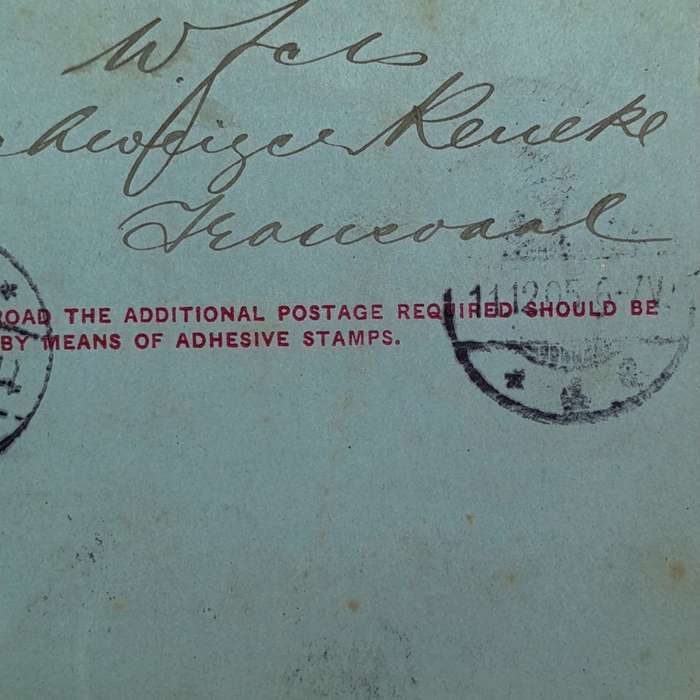 W. Fels
chweizer Reneke
Transvaal
ROAD THE ADDITIONAL POSTAGE REQUIRED SHOULD BE
BY MEANS OF ADHESIVE STAMPS.
11.12.05.6-7V.